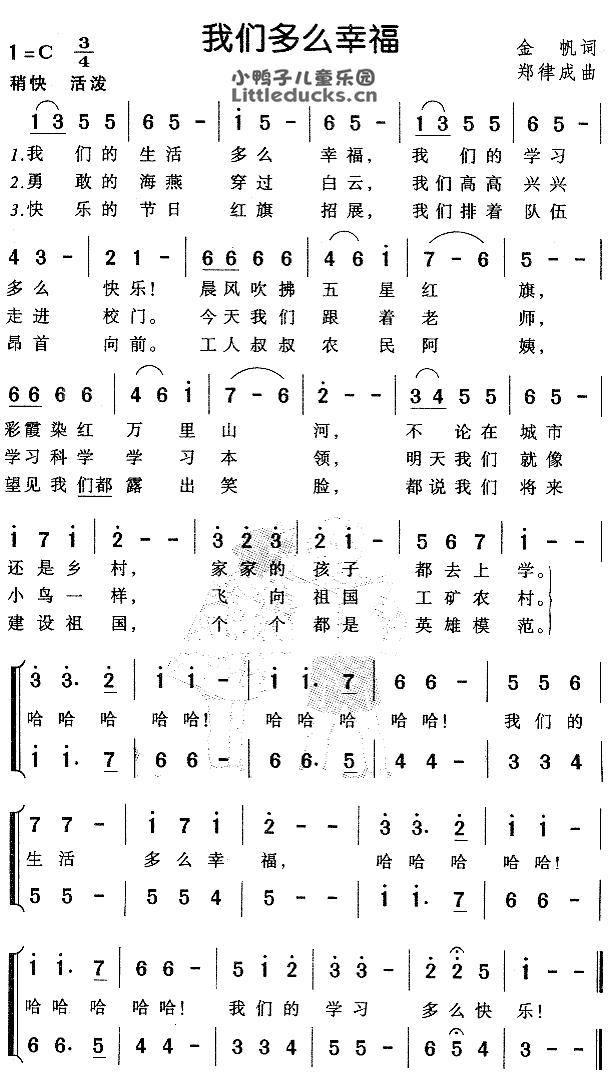 我们多么幸福
1=C 3/4
金 帆 词
稍快 活泼
郑律成 曲
小鸭子儿童乐园
Littleducks.cn
1 3 5 5 | 6 5 - | i 5 - | 6 5 - | 1 3 5 5 | 6 5 - |
1.我 们的 生活 多么 幸福, 我 们的 学习
2.勇 敢的 海燕 穿过 白云, 我们高高 兴兴
3.快 乐的 节日 红旗 招展, 我们排着 队伍
4 3 - | 2 1 - | 6 6 6 6 | 4 6 i | 7 - 6 | 5 - - |
多么 快乐! 晨风吹拂 五 星红 旗,
走进 校门。 今天我们 跟 着老 师,
昂首 向前。 工人叔叔 农 民阿 姨,
6 6 6 6 | 4 6 i | 7 - 6 | 2 - - | 3 4 5 5 | 6 5 - |
彩霞染红 万 里山 河, 不 论在 城市
学习科学 学 习本 领, 明天我们 就像
望见我们都 露 出笑 脸, 都说我们 将来
i 7 i | 2 - - | 3 2 3 | 2 i - | 5 6 7 | i - - |
还是乡 村, 家家的 孩子 都去上 学。
小鸟一 样, 飞向祖 国 工矿农 村。
建设祖 国, 个个都 是 英雄模 范。
3 3. 2 | i i - | i i. 7 | 6 6 - | 5 5 6 |
哈哈 哈 哈哈! 哈哈 哈 哈哈! 我们的
i i. 7 | 6 6 - | 6 6. 5 | 4 4 - | 3 3 4 |
7 7 - | i 7 i | 2 - - | 3 3. 2 | i i - |
生活 多么幸 福, 哈哈 哈 哈哈!
5 5 - | 5 5 4 | 5 - - | i i. 7 | 6 6 - |
i i. 7 | 6 6 - | 5 i 2 | 3 3 - | 2 2 5 | i - ‖
哈哈 哈 哈哈! 我们的 学习 多么快 乐!
6 6. 5 | 4 4 - | 3 3 4 | 5 5 - | 6 5 4 | 3 - ‖